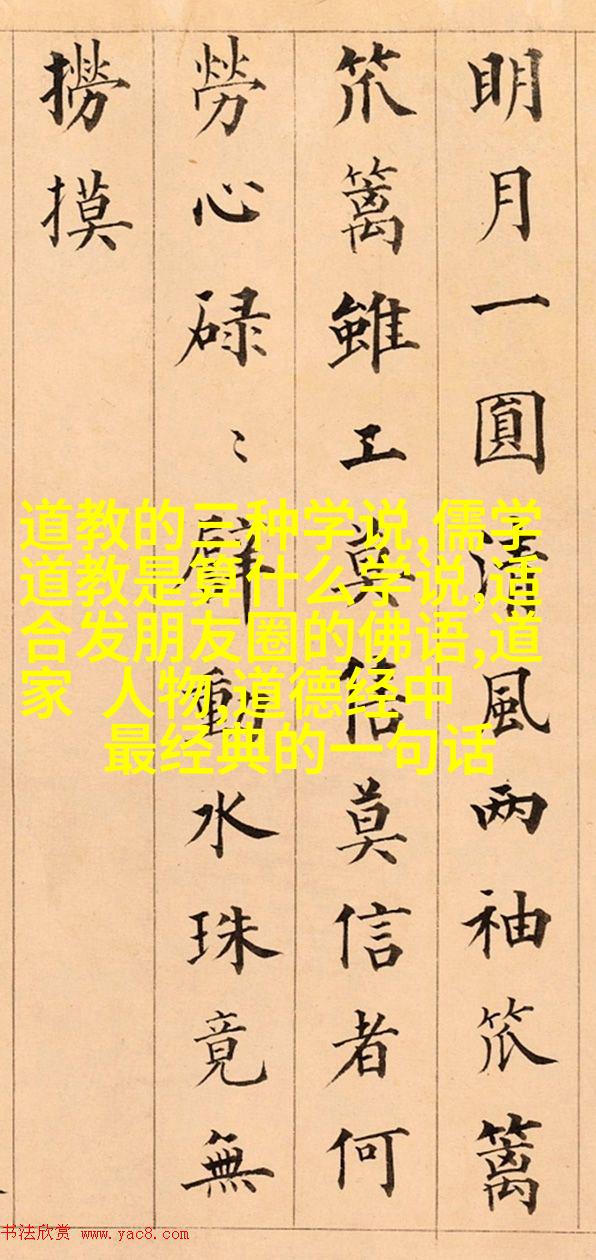 明月一圓清風两袖笊篱
笊篱雖工莫信莫信者何
勞心碌〻動水珠竟無
撈摸
道教的三种学说,儒学
道教是算什么学说,适
合发朋友圈的佛语,道
家 人物,道德经中
最经典的一句话
书法欣赏 www.yac8.com